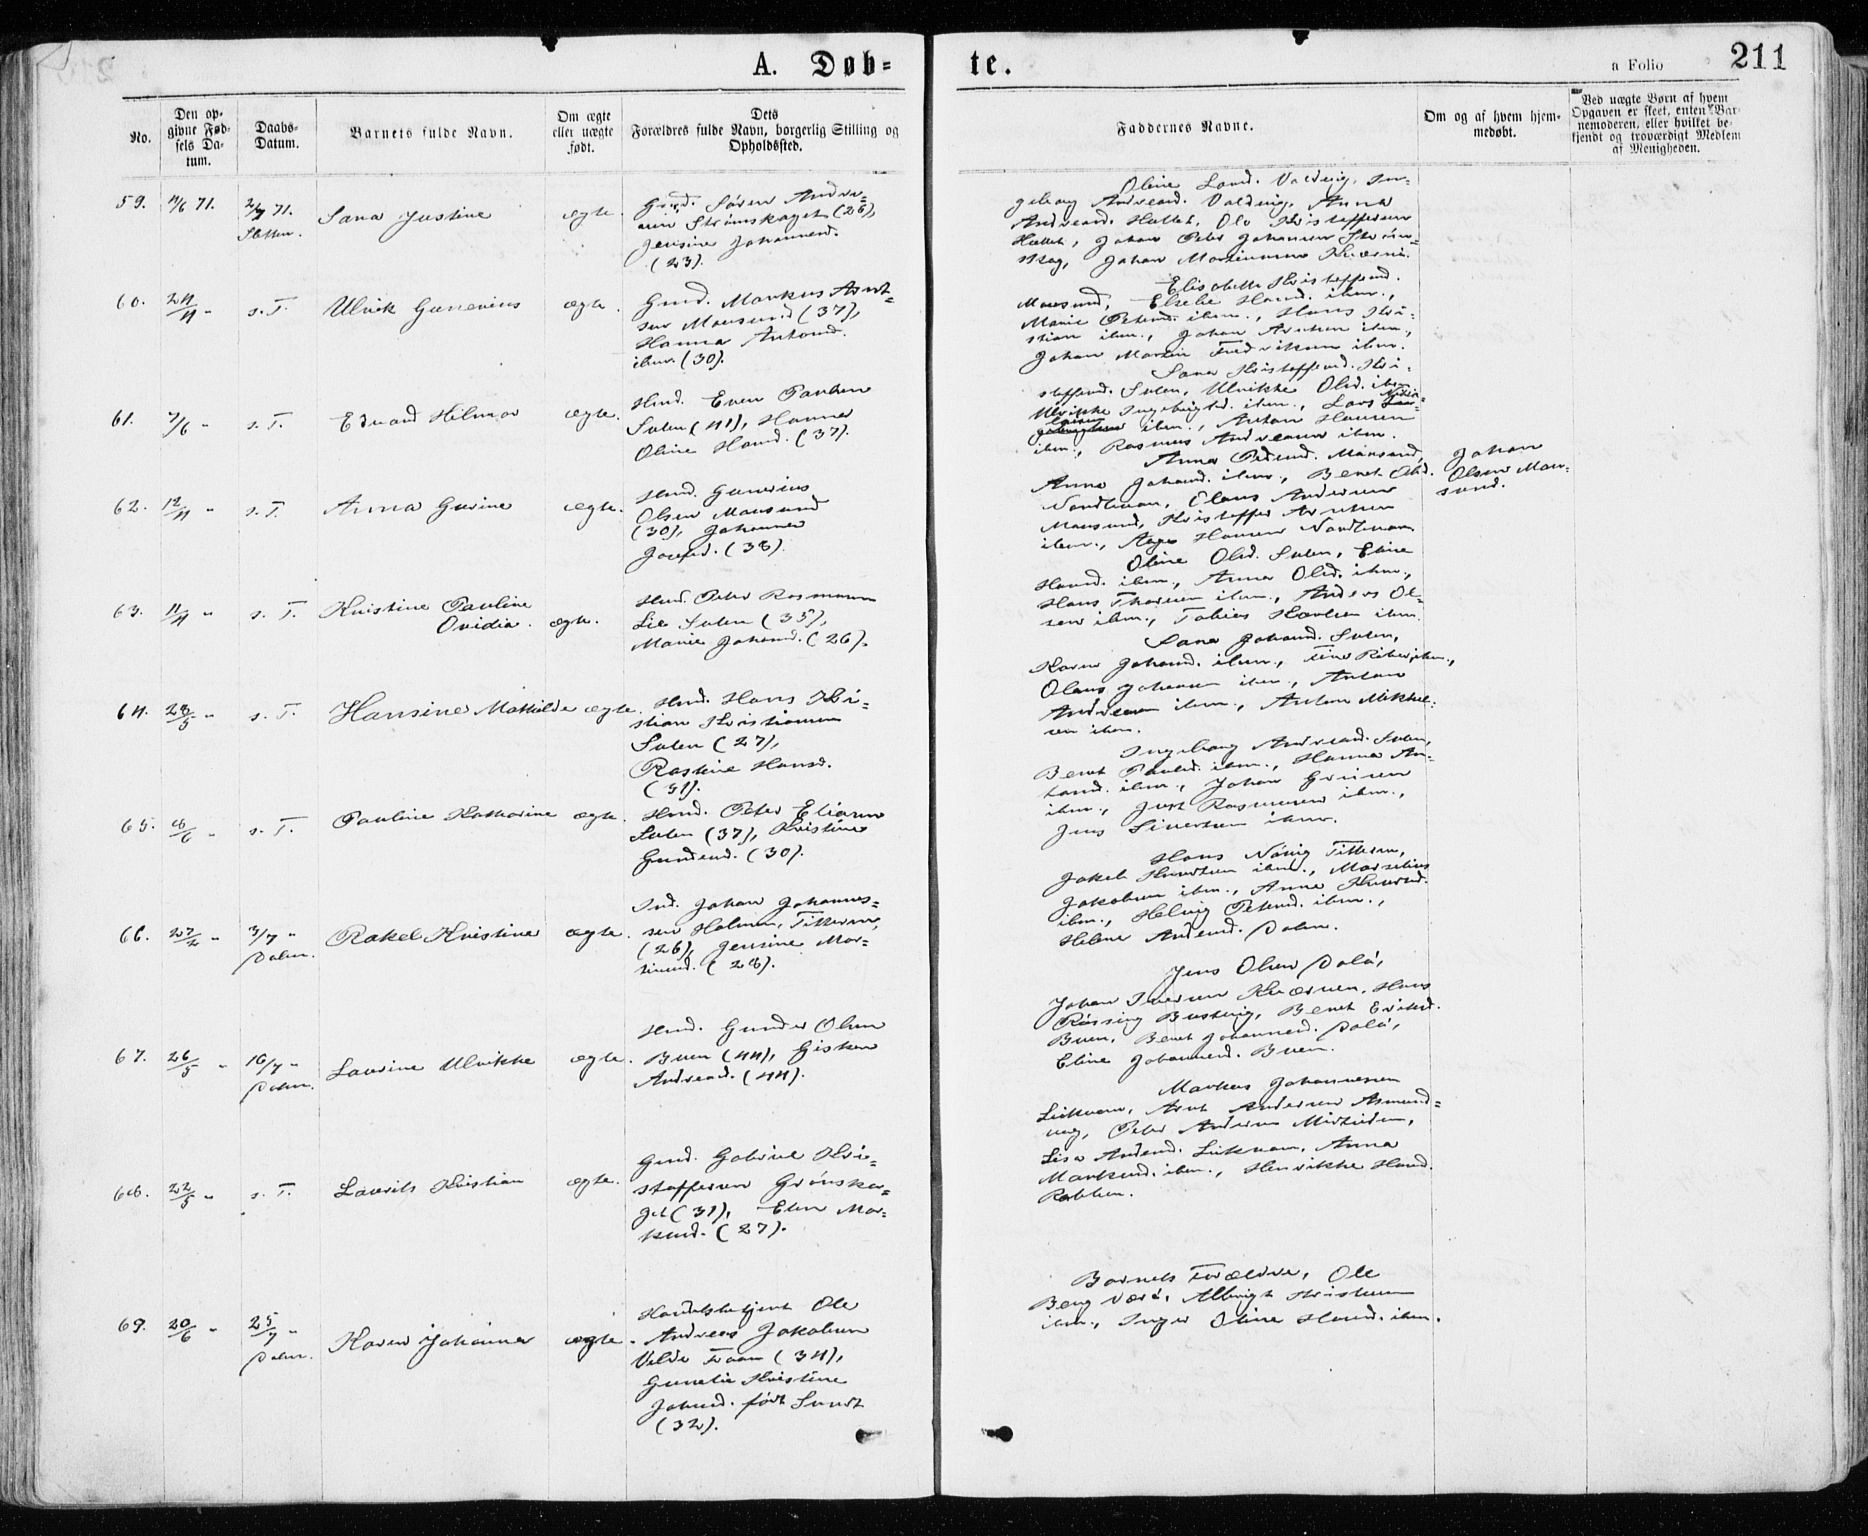 A. Døb= te.
a Folio 211
No.
Den op-
givne Fød-
sels Da-
tum.
Daabs-
Datum.
Barnets fulde Navn.
Om ægte
eller uægte
født.
Dets
Forældres fulde Navn, borgerlig Stilling og
Opholdssted.
Faddernes Navne.
Om og af hvem hjem-
medøbt.
Ved uægte Børn af hvem
Opgaven er skeet, enten Bar-
nemoderen, eller hvilket be-
kjendt og troværdigt Medlem
af Menigheden.
59. 71. 2/7 71. Sana Justine ægte.
Søren Andre=
Strømskaget (26),
Jensine Johannesd.
(23).
Oline Valdvig, In=
geborg Andreasd. Valdvig, Anna
Andreasd. Hallet, Ole Kristoffersen
Hallet, Johan Peter Johansen Strøm=
skag, Johan
60. 24/4 " s. T. Ulrik Gunerius ægte.
Gmd. Markus Arnt=
sen Mausund (37),
Hanna Antonsd.
ibm. (30).
Elisabeth Kristoffersd.
Mausund, Elsebe Hansd. ibm.,
Marie Petersd. ibm., Hans Kri=
stian ibm., Johan Arntsen ibm.,
Johan Martin Fredriksen ibm.
61. 7/6 " s. T. Edvard Hilmar ægte.
Hmd. Even Paulsen
Sulen (41), Hanna
Oline Hansd. (37).
Sana Kristoffersd. Kri=
stoffersd. Sulen, Ulrikke Olsd. ibm.
Ulrikke Ingebrigtsd. ibm., Lars
ibm., Anton Hansen
ibm., Rasmus Andreasen ibm.
62. 12/4 " s. T. Anna Gurine ægte.
Hmd. Gunerius
Olsen Mausund
(30), Johanna
Josefsd. (38).
Anna Pedersd. Mausund,
Anna Johansd. ibm., Beret Olsd.
Nordhman, Claus Andersen
Mausund, Kristoffer Arntsen
ibm., Aage Hansen Nordhman
Johan
Olsen Mau=
sund.
63. 11/4 " s. T. Kristine Pauline
Ovidia. ægte.
Hmd. Peter Rasmussen
Lie Sulen (35),
Marie Johansd. (26).
Oline Olsd. Sulen, Eline
Hansd. ibm., Anna Olsd. ibm.,
Hans Thorsen ibm., Anders Ol=
sen ibm., Tobias Karlsen ibm.
64. 28/5 " s. T. Hansine Mathilde ægte.
Hmd. Hans Kri=
stian Kristiansen
Sulen (27),
Rastine Hansd.
(31).
Sana Johansd. Sulen,
Karen Johansd. ibm.,
Olaus Johansen ibm., Anton
Andreasen ibm., Anton Mikkel=
sen ibm.
65. 8/6 " s. T. Pauline Katharine ægte.
Hmd. Peter Eliasen
Sulen (37), Kristine
Gundersd. (30).
Ingeborg Andreasd. Sulen,
Beret Paulsd. ibm., Hanna An=
tonsd. ibm., Johan
ibm., Just Rasmussen ibm.,
Jens Sivertsen ibm.
66. 27/2 " 3/7 "
Dolm.
Rakel Kristine ægte.
Ind. Johan Johannes=
sen Holmen, Titteren,
(26), Jensine Mar=
(28).
Hans Nørvig Titteren,
Jakob Knudsen ibm., Marselius
Jakobsen ibm., Anne Knudsd.
ibm., Helvig Petersd. ibm.,
Helene Andersd. Dolm.
67. 26/5 " 16/7 "
Dolm.
Laurine Ulrikke ægte.
Hmd. Gunder Olsen
Buen (44), Gisken
Andreasd. (44).
Jens Olsen Dolø,
Johan Iversen Kværnen, Hans
Røssing Bustvig, Beret Eriksd.
Buen, Beret Johannesd. Dolø,
Eline Johannesd. Buen.
68. 22/5 " s. T. Laurits Kristian ægte.
Gmd. Gabriel Kri=
stoffersen Grønska=
get (31), Elen Mar=
kusd. (27).
Markus Johannesen
Liekvam, Arnt Andersen Asmund=
vag, Peter Andersen
Lisa Andersd. Liekvam, Anna
Markusd. ibm., Henrikke Hansd.
Rabben.
69. 20/6 " 25/7 "
Dolm.
Karen Johanna ægte.
Handelsbetjent Ole
Andreas Jakobsen
Velde Froan (34),
Gunelie Kristine
Johnsd. født Sundt
(32).
Barnets Forældre, Ole
Berg Værø, Albrigt Kristensen
ibm., Inger Oline Hansd. ibm.